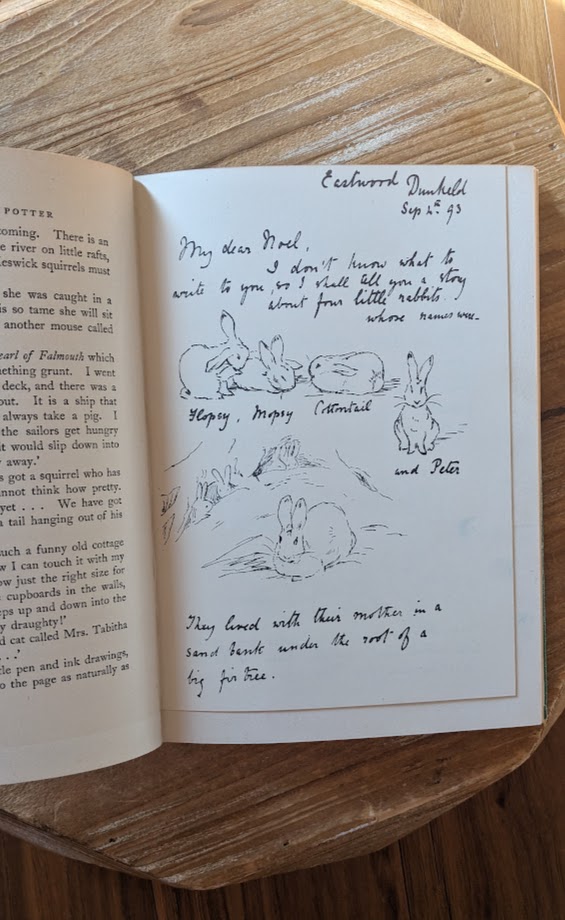 POTTER
coming. There is an
e river on little rafts,
eswick squirrels must
she was caught in a
is so tame she will sit
another mouse called
earl of Falmouth which
mething grunt. I went
deck, and there was a
out. It is a ship that
always take a pig. I
the sailors get hungry
it would slip down into
away.'
s got a squirrel who has
annot think how pretty.
yet . . . We have got
a tail hanging out of his
such a funny old cottage
w I can touch it with my
ow just the right size for
cupboards in the walls,
eps up and down into the
y draughty!'
d cat called Mrs. Tabitha
. . .'
tle pen and ink drawings,
o the page as naturally as
Eastwood Dunkeld
Sep 4th 93
My dear Noel,
I don't know what to
write to you, so I shall tell you a story
about four little rabbits.
whose names were-
Flopsy, Mopsy Cottontail
and Peter
They lived with their mother in a
sand bank under the root of a
big fir tree.